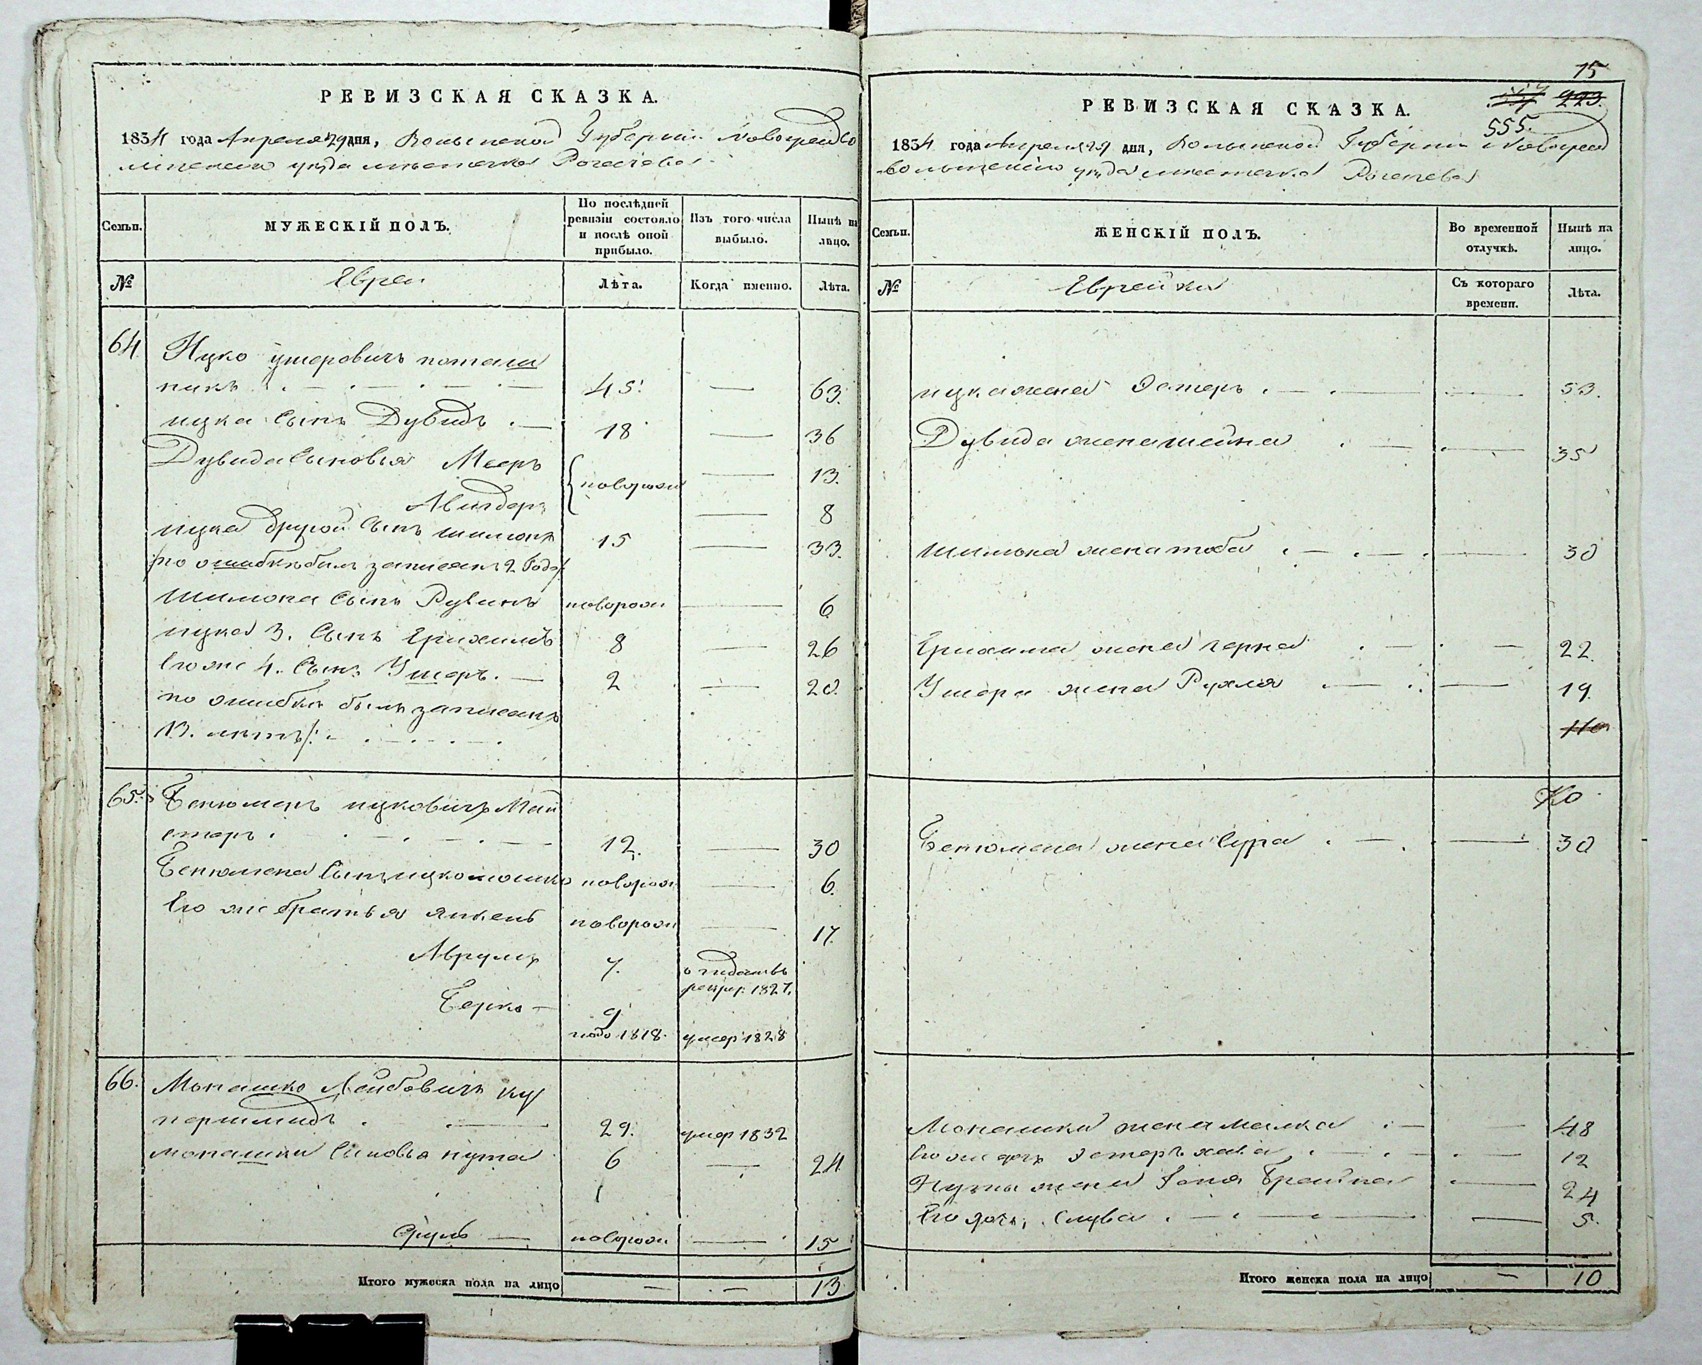 РЕВИЗСКАЯ СКАЗКА.
1834 года Апреля 29 дня, Волынской Губернии Новоградво
линскаго уезда местечка Рогачева
Семьи.
МУЖЕСКІЙ ПОЛЪ.
По послѣдней ревизіи состояло и послѣ оной прибыло.
Изъ того числа выбыло.
Нынѣ на лицо.
№
Евреи
Лѣта.
Когда именно.
Лѣта.
64
Ицко Умеровичъ
никъ 45 — 63
ицка сынъ Дувидъ 18 — 36
Дувида сыновья Мееръ новорожд — 13
Авигдоръ — 8
ицка другой сынъ шимонъ 15 — 33
по ошибке был записанъ 2 года
шимона сынъ Рувинъ новорож — 6
ицка 3. сынъ 8 — 26
его же 4. сынъ Ушеръ 2 — 20
по ошибке былъ записанъ
13. летъ
65.
Бенюменъ ицковичъ Май
стеръ 12. — 30
Бенюмена сынъ ицкомошко новорож — 6.
Его же братья янкель новорож — 17.
Аврумъ 7. рекрут. 1827.
Берко — 9
1818. умер 1828
66.
Монашко Лейбовичъ ку
першмидъ 29. умер 1832
монашки сыновья нута 6 — 24
Сруль — новорож — 15
Итого мужеска пола на лицо — — 13
15
223.
555.
РЕВИЗСКАЯ СКАЗКА.
1834 года Апреля 29 дня, Волынской Губернии Новоград
волынскаго уезда местечка Рогачева
Семьи.
ЖЕНСКІЙ ПОЛЪ.
Во временной отлучкѣ.
Нынѣ на лицо.
№
Еврейки
Съ котораго времени.
Лѣта.
ицка жена Эстеръ — 53.
Дувида жена шейна — 35
Шимона жена тоба — 30
жена черна — 22.
Ушера жена Рухля — 19.
110
Бенюмена жена Сура — 30
Монашки жена малка — 48
Его же дочь Эстеръ хава — 12
Нуты жена Брейна — 24
Его дочь Слува — 5.
Итого женска пола на лицо — 10